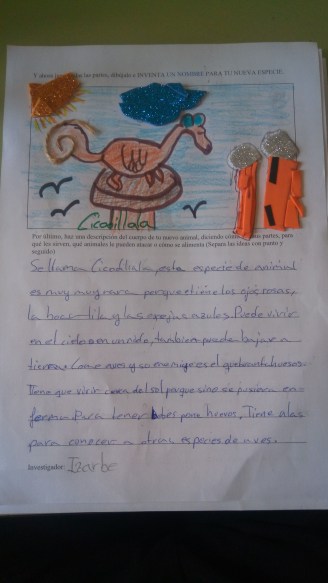 Y ahora las partes, dibújala e INVENTA UN NOMBRE PARA TU NUEVA ESPECIE.
Cicodillala
Por último, haz una descripción del cuerpo de tu nuevo animal, diciendo cómo son sus partes, para
qué les sirven, qué animales le pueden atacar o cómo se alimenta (Separa las ideas con punto y
seguido)
Se llama Cicodillala, esta especie de animal
es muy muy rara porque tiene los ojos rosas,
la boca lila y las orejas azules. Puede vivir
en el cielo o en un nido, tambien puede bajar a
tierra. Come aves y su enemigo es el quebrantahuesos.
Tiene que vivir cerca del sol porque sino se pusiera en-
fermo. Para tener pone huevos. Tiene alas
para conocer a otras especies de aves.
Investigador: Izarbe